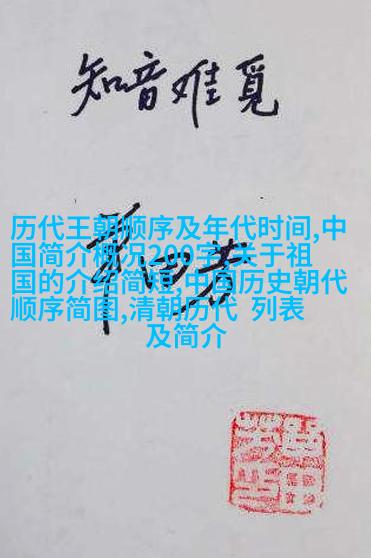 知音难觅
历代王朝顺序及年代时间,中
国简介概况200字,关于祖
国的介绍简短,中国历史朝代
顺序简图,清朝历代 列表
及简介